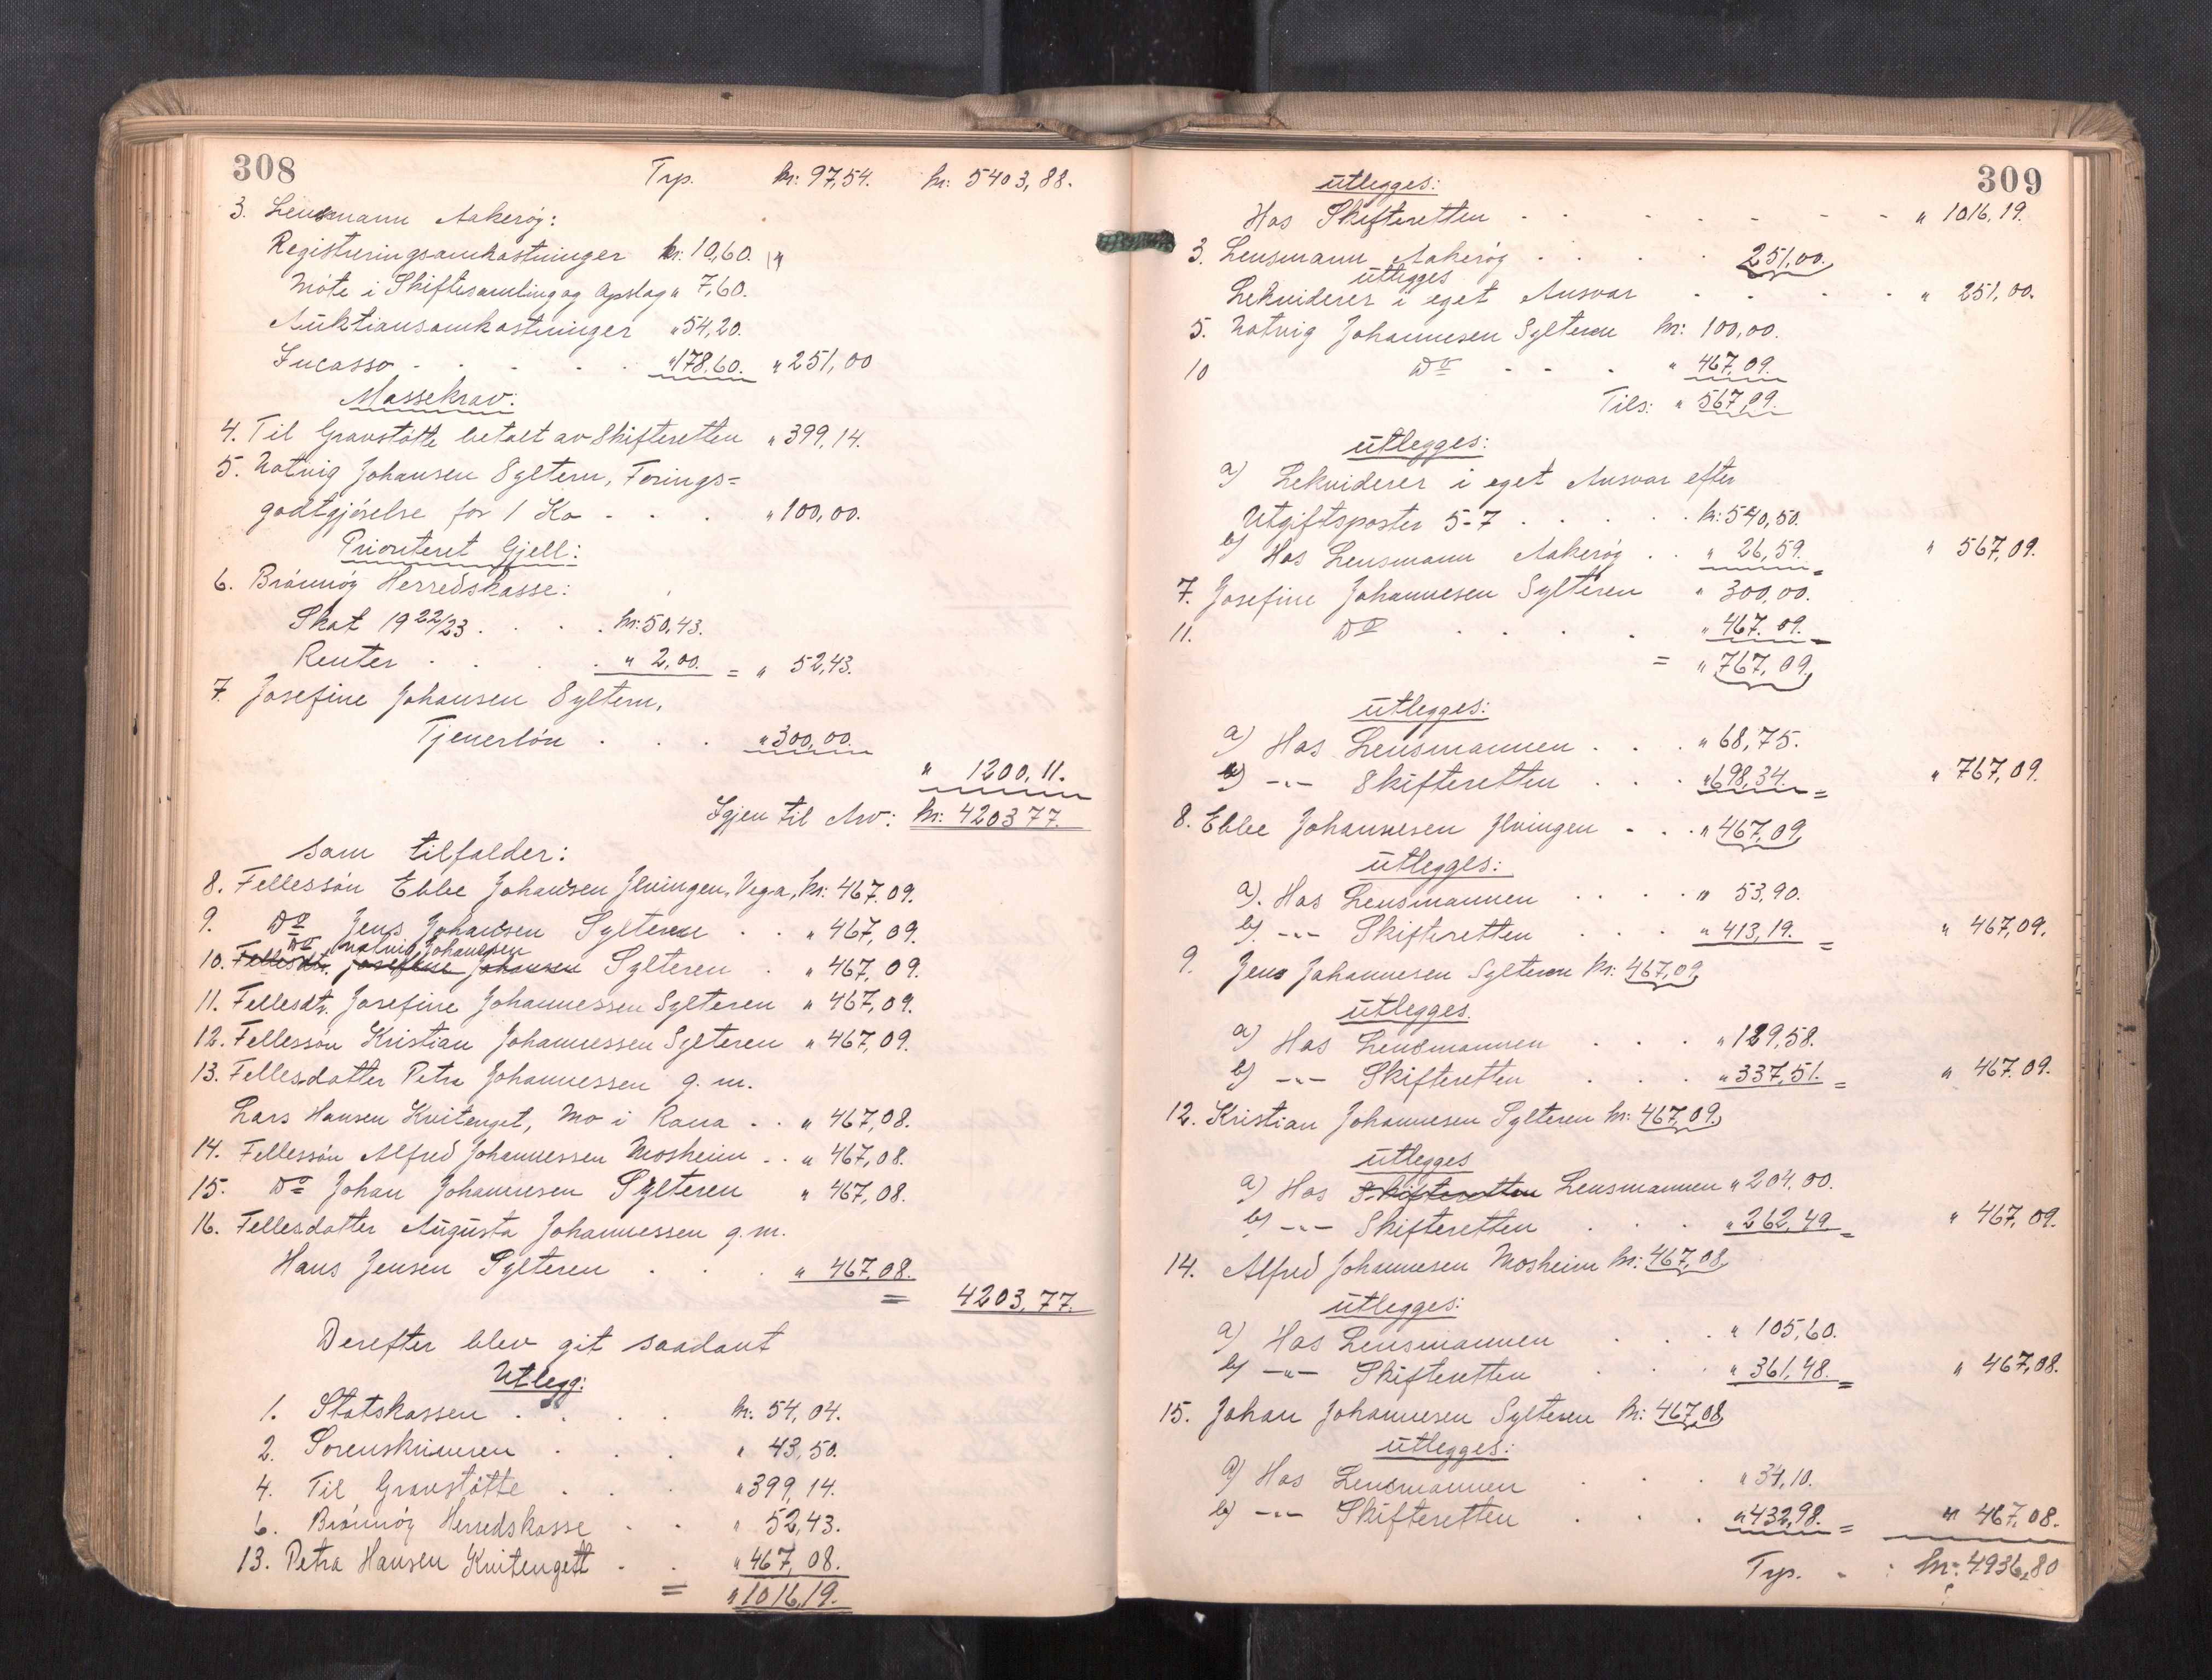 308
Trp. kr: 97,54. kr: 5403,88.
3. Lensmann Aakerøy:
Registreringsomkostninger kr: 10,60.
Møte i Skiftesamling og Opslag " 7,60.
Auktionsomkostninger " 54,20.
Incasso . . . . . " 178,60. " 251,00
Massekrav:
4. Til Gravstøtte betalt av Skifteretten " 399,14.
5. Notvig Johansen Sylteren, Forings=
godtgjørelse for 1 Ko - . . " 100,00.
Prioriteret Gjell:
6. Brønnøy Herredskasse:
Skat 1922/23 . . . . kr: 50,43.
Renter . . . . " 2,00. = " 52,43.
7. Josefine Johansen Sylteren,
Tjenerløn . . . " 300,00.
" 1200,11.
Igjen til Arv: kr: 4203 77.
som tilfalder:
8. Fellessøn Ebbe Johansen Ilvingen, Vega, kr: 467.09.
9. Do Jens Johansen Sylteren . . " 467,09.
Do Notvig Johansen
10. Fellesdtr. Josefine Johansen Sylteren . " 467,09.
11. Fellesdtr. Josefine Johannessen Sylteren " 467,09.
12. Fellessøn Kristian Johannessen Sylteren " 467,09.
13. Fellesdatter Petra Johannessen g. m.
Lars Hansen Kvitenget, Mo i Rana . . " 467,08.
14. Fellessøn Alfred Johannessen Mosheim . . " 467,08.
15. Do Johan Johannesen Sylteren " 467,08.
16. Fellesdatter Augusta Johannessen g. m.
Hans Jensen Sylteren . . . " 467,08.
= 4203,77.
Derefter blev git saadant
Utlegg:
1. Statskassen . . . . kr. 54,04.
2. Sorenskriveren . . . " 43,50.
4. Til Gravstøtte . . . " 399,14.
6. Brønnøy Herredskasse . . " 52,43.
13. Petra Hansen Kvitengett . . " 467,08.
= " 1016,19.
309
utlegges:
Hos Skifteretten - - - - - - - - " 1016,19.
3. Lensmann Aakerøy . . . . 251,00.
utlegges
Lekviderer i eget Ansvar - . . . " 251,00.
5. Notvig Johannesen Sylteren kr: 100,00.
10 Do - - . " 467,09.
Tils: " 567,09.
utlegges:
a) Lekviderer i eget Ansvar efter
Utgiftsposter 5-7 . . . . . kr: 540,50.
b) Hos Lensmann Aakerøy . . " 26,59. " 567,09.
7. Josefine Johannesen Sylteren " 300,00.
11. Do . . . . " 467.09.
= " 767,09.
utlegges:
a) Hos Lensmannen . . . " 68,75.
b) -"- Skifteretten . . . " 698,34. = " 767,09.
8. Ebbe Johannesen Ilvingen - . . " 467,09.
utlegges:
a). Hos Lensmannen . . . . " 53,90.
b). -"- Skifteretten . . . " 413,19. = " 467,09.
9. Jens Johannesen Sylteren kr: 467,09.
utlegges.
a) Hos Lensmannen . . . " 129,58.
b) -"- Skifteretten . . . " 337,51. = " 467.09.
12. Kristian Johannesen Sylteren kr: 467,09.
utlegges
a) Hos Skifteretten Lensmannen " 204.00.
b) -"- Skifteretten . . . " 262,49. = " 467,09.
14. Alfred Johannesen Mosheim kr: 467,08.
utlegges:
a) Hos Lensmannen . . . " 105,60.
b) -"- Skifteretten . . . " 361,48. = " 467,08.
15. Johan Johannesen Sylteren kr: 467,08.
utlegges:
a) Hos Lensmannen . . . " 34,10.
b) -"- Skifteretten . . . " 432,98. = " 467,08.
Trp. - : kr: 4936,80